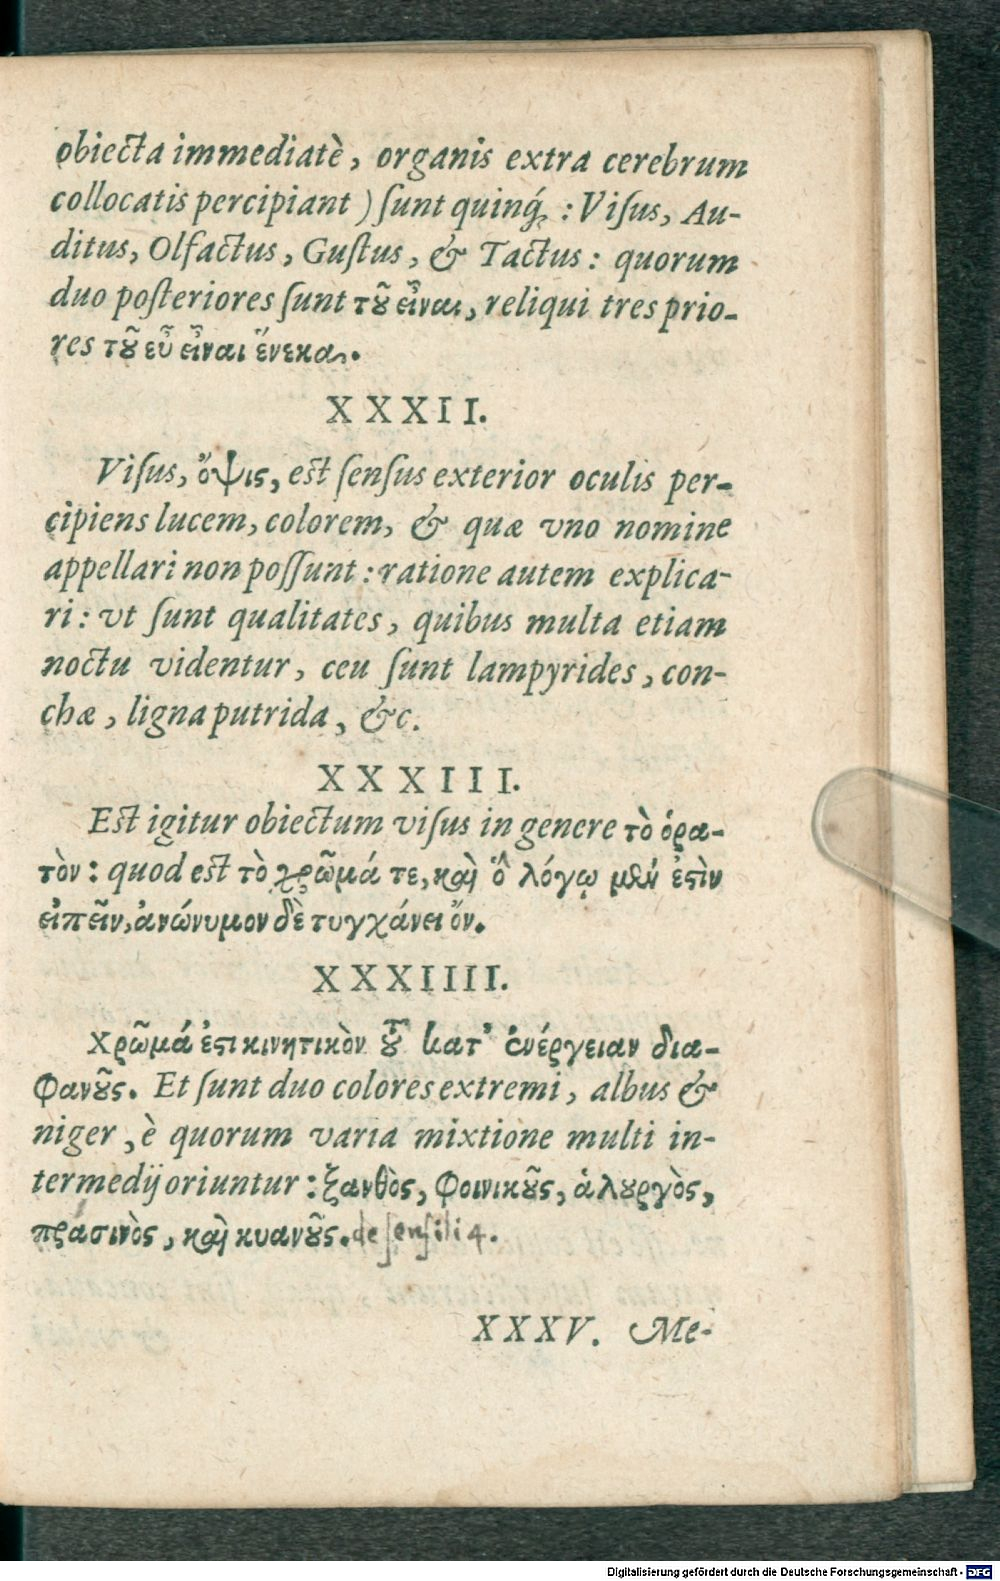 obiecta immediatè, organis extra cerebrum
collocatis percipiant) ſunt quinq́; : Viſus, Au-
ditus, Olfactus, Guſtus, & Tactus: quorum
duo poſteriores ſunt τȣ͂ εἶναι, reliqui tres prio-
res τȣ͂ εὖ εἶναι ἕνεκα.
XXXII.
Viſus, ὄψις, est ſenſus exterior oculis per-
cipiens lucem, colorem, & quæ vno nomine
appellari non poſſunt: ratione autem explica-
ri: vt ſunt qualitates, quibus multa etiam
noctu videntur, ceu ſunt lampyrides, con-
chæ, ligna putrida, &c.
XXXIII.
Est igitur obiectum viſus in genere τὸ ὁρα-
τὸν: quod est τὸ χρῶμά τε, καὶ ὃ λόγῳ μὲν ἐϛὶν
εἰπεῖν, ἀνώνυμον δὲ τυγχάνει ὄν.
XXXIIII.
Χρῶμά ἐϛι κινητικὸν τȣ͂ κατ' ἐνέργειαν δια-
φανȣ͂ς. Et ſunt duo colores extremi, albus &
niger, è quorum varia mixtione multi in-
termedij oriuntur: ξανθὸς, φοινικȣ͂ς, ἁλȣργὸς,
πρασινὸς, καὶ κυανȣ͂ς. de ſenſili 4.
XXXV. Me-
Digitalisierung gefördert durch die Deutsche Forschungsgemeinschaft - DFG